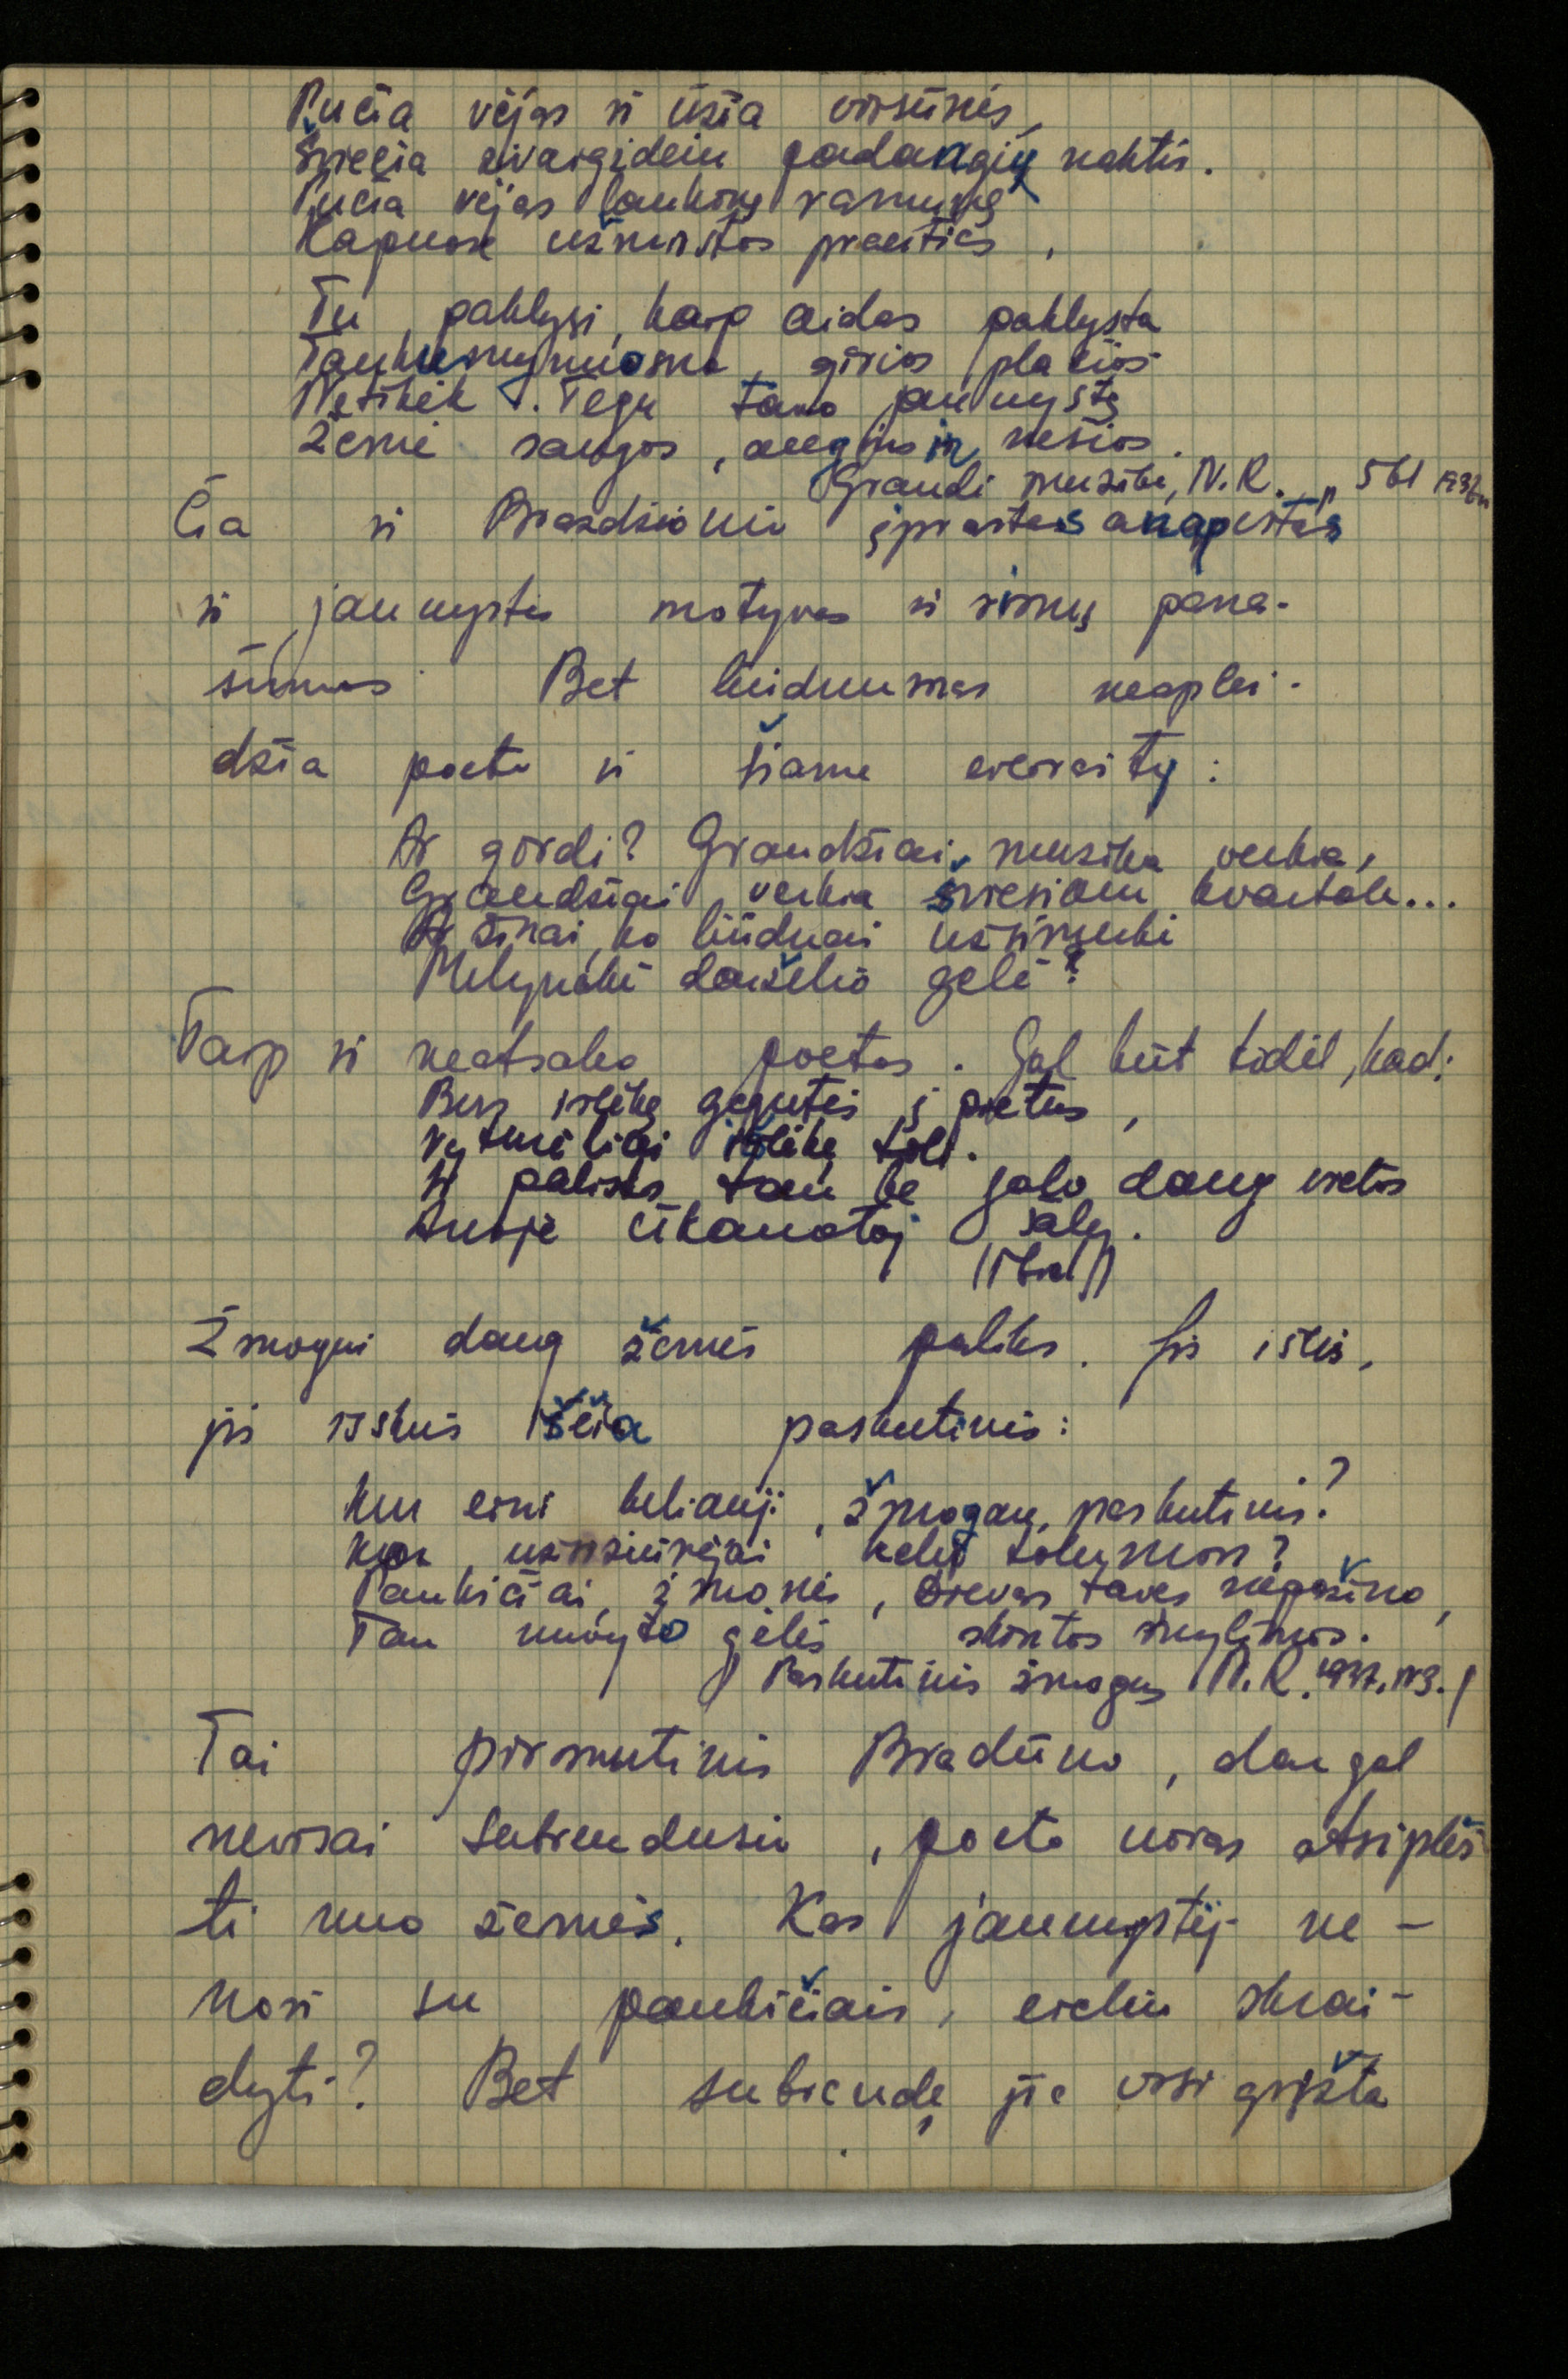 Pučia vėjas ir ūžia viršūnės,
Šviečia žvaigždėm padangių naktis.
Pučia vėjas laukinę ramunę
Kapuose užmirštos praeities.
Tu paklysi, kaip aidas paklysta
Tankumynuosna girios plačios
Netikėk. Tegu tavo jaunystę
Žemė saugos, augins ir nešios.
Graudi muzika, N.R. 561
Čia ir Brazdžionio įprastas anapestas
ir jaunystės motyvas ir rimų pana-
šumas. Bet liūdnumas neaplei-
džia poeto ir šiame eilėrašty:
Ar girdi? Graudžiai muzika verkia,
Graudžiai verkia šviesiam kvartale...
Ar žinai, ko liūdnai užsimerkė
Mėlynakė darželio gėlė?
Taip ir neatsako poetas. Gal būt todėl, kad:
Bus išlėkę gegutės į pietus,
vyturėliai išlėkę toli.
Ir paliks tau be galo daug vietos
Ausoje ūkanotoj šaly.
(Ibid)
Žmogui daug žemės paliks. Jis išeis,
jis išeina paskutinis:
Kur eini keliauji, žmogau, paskutinis?
Kur užsižiūrėjai kelio tolumon?
Paukščiai, žmonės, Dievas tavęs nepažino,
Tau nuvyto gėlės skintos mylimos.
/Paskutinis žmogus N.R. 1937, nr 3./
Tai pirmutinis Bradūno, dar gal
nevisai subrendusio, poeto noras atsiplėš
ti nuo žemės. Kas jaunystėj ne-
nori su paukščiais, erdvėj skrai-
dyti? Bet subrendę jie visi grįžta